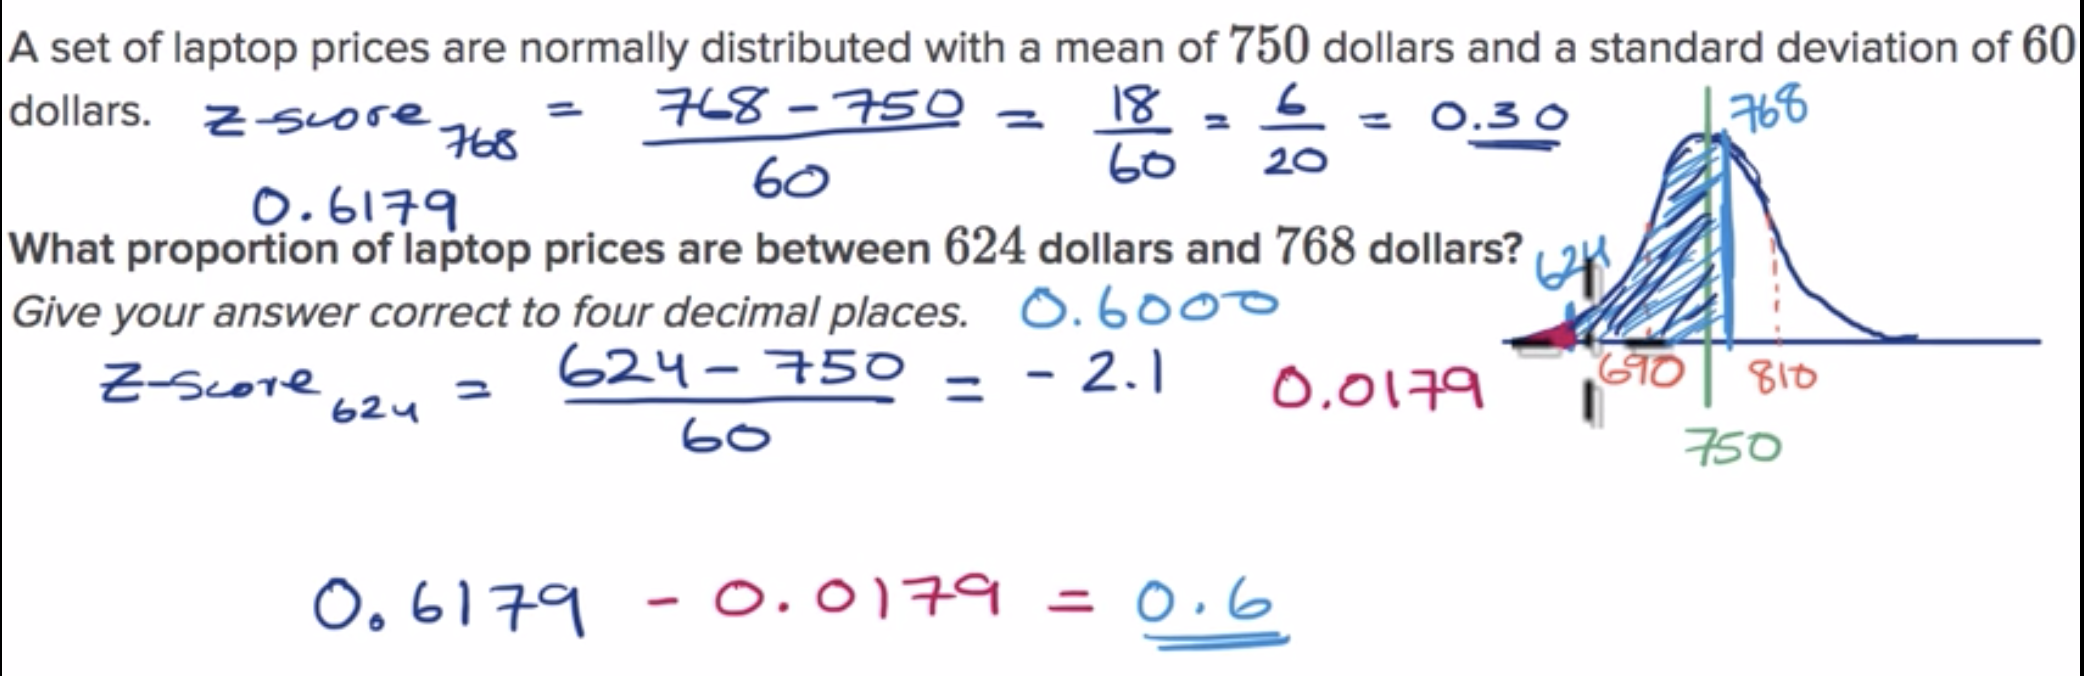 A set of laptop prices are normally distributed with a mean of 750 dollars and a standard deviation of 60
dollars. z-score 768 = 768 - 750 / 60 = 18/60 = 6/20 = 0.30
768
0.6179
What proportion of laptop prices are between 624 dollars and 768 dollars?
624
Give your answer correct to four decimal places. 0.6000
z-score 624 = 624 - 750 / 60 = - 2.1
0.0179
690
810
750
0.6179 - 0.0179 = 0.6